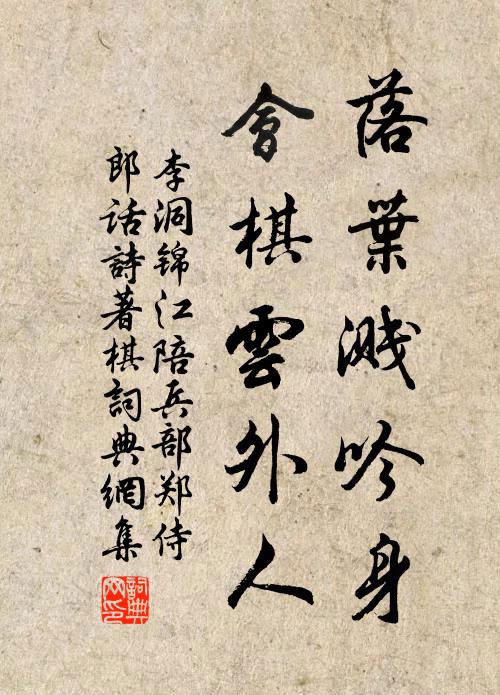 落葉濺吟身
會棋雲外人
李洞锦江陪兵部郑侍
郎话詩著棋詞典網集
詞典網印